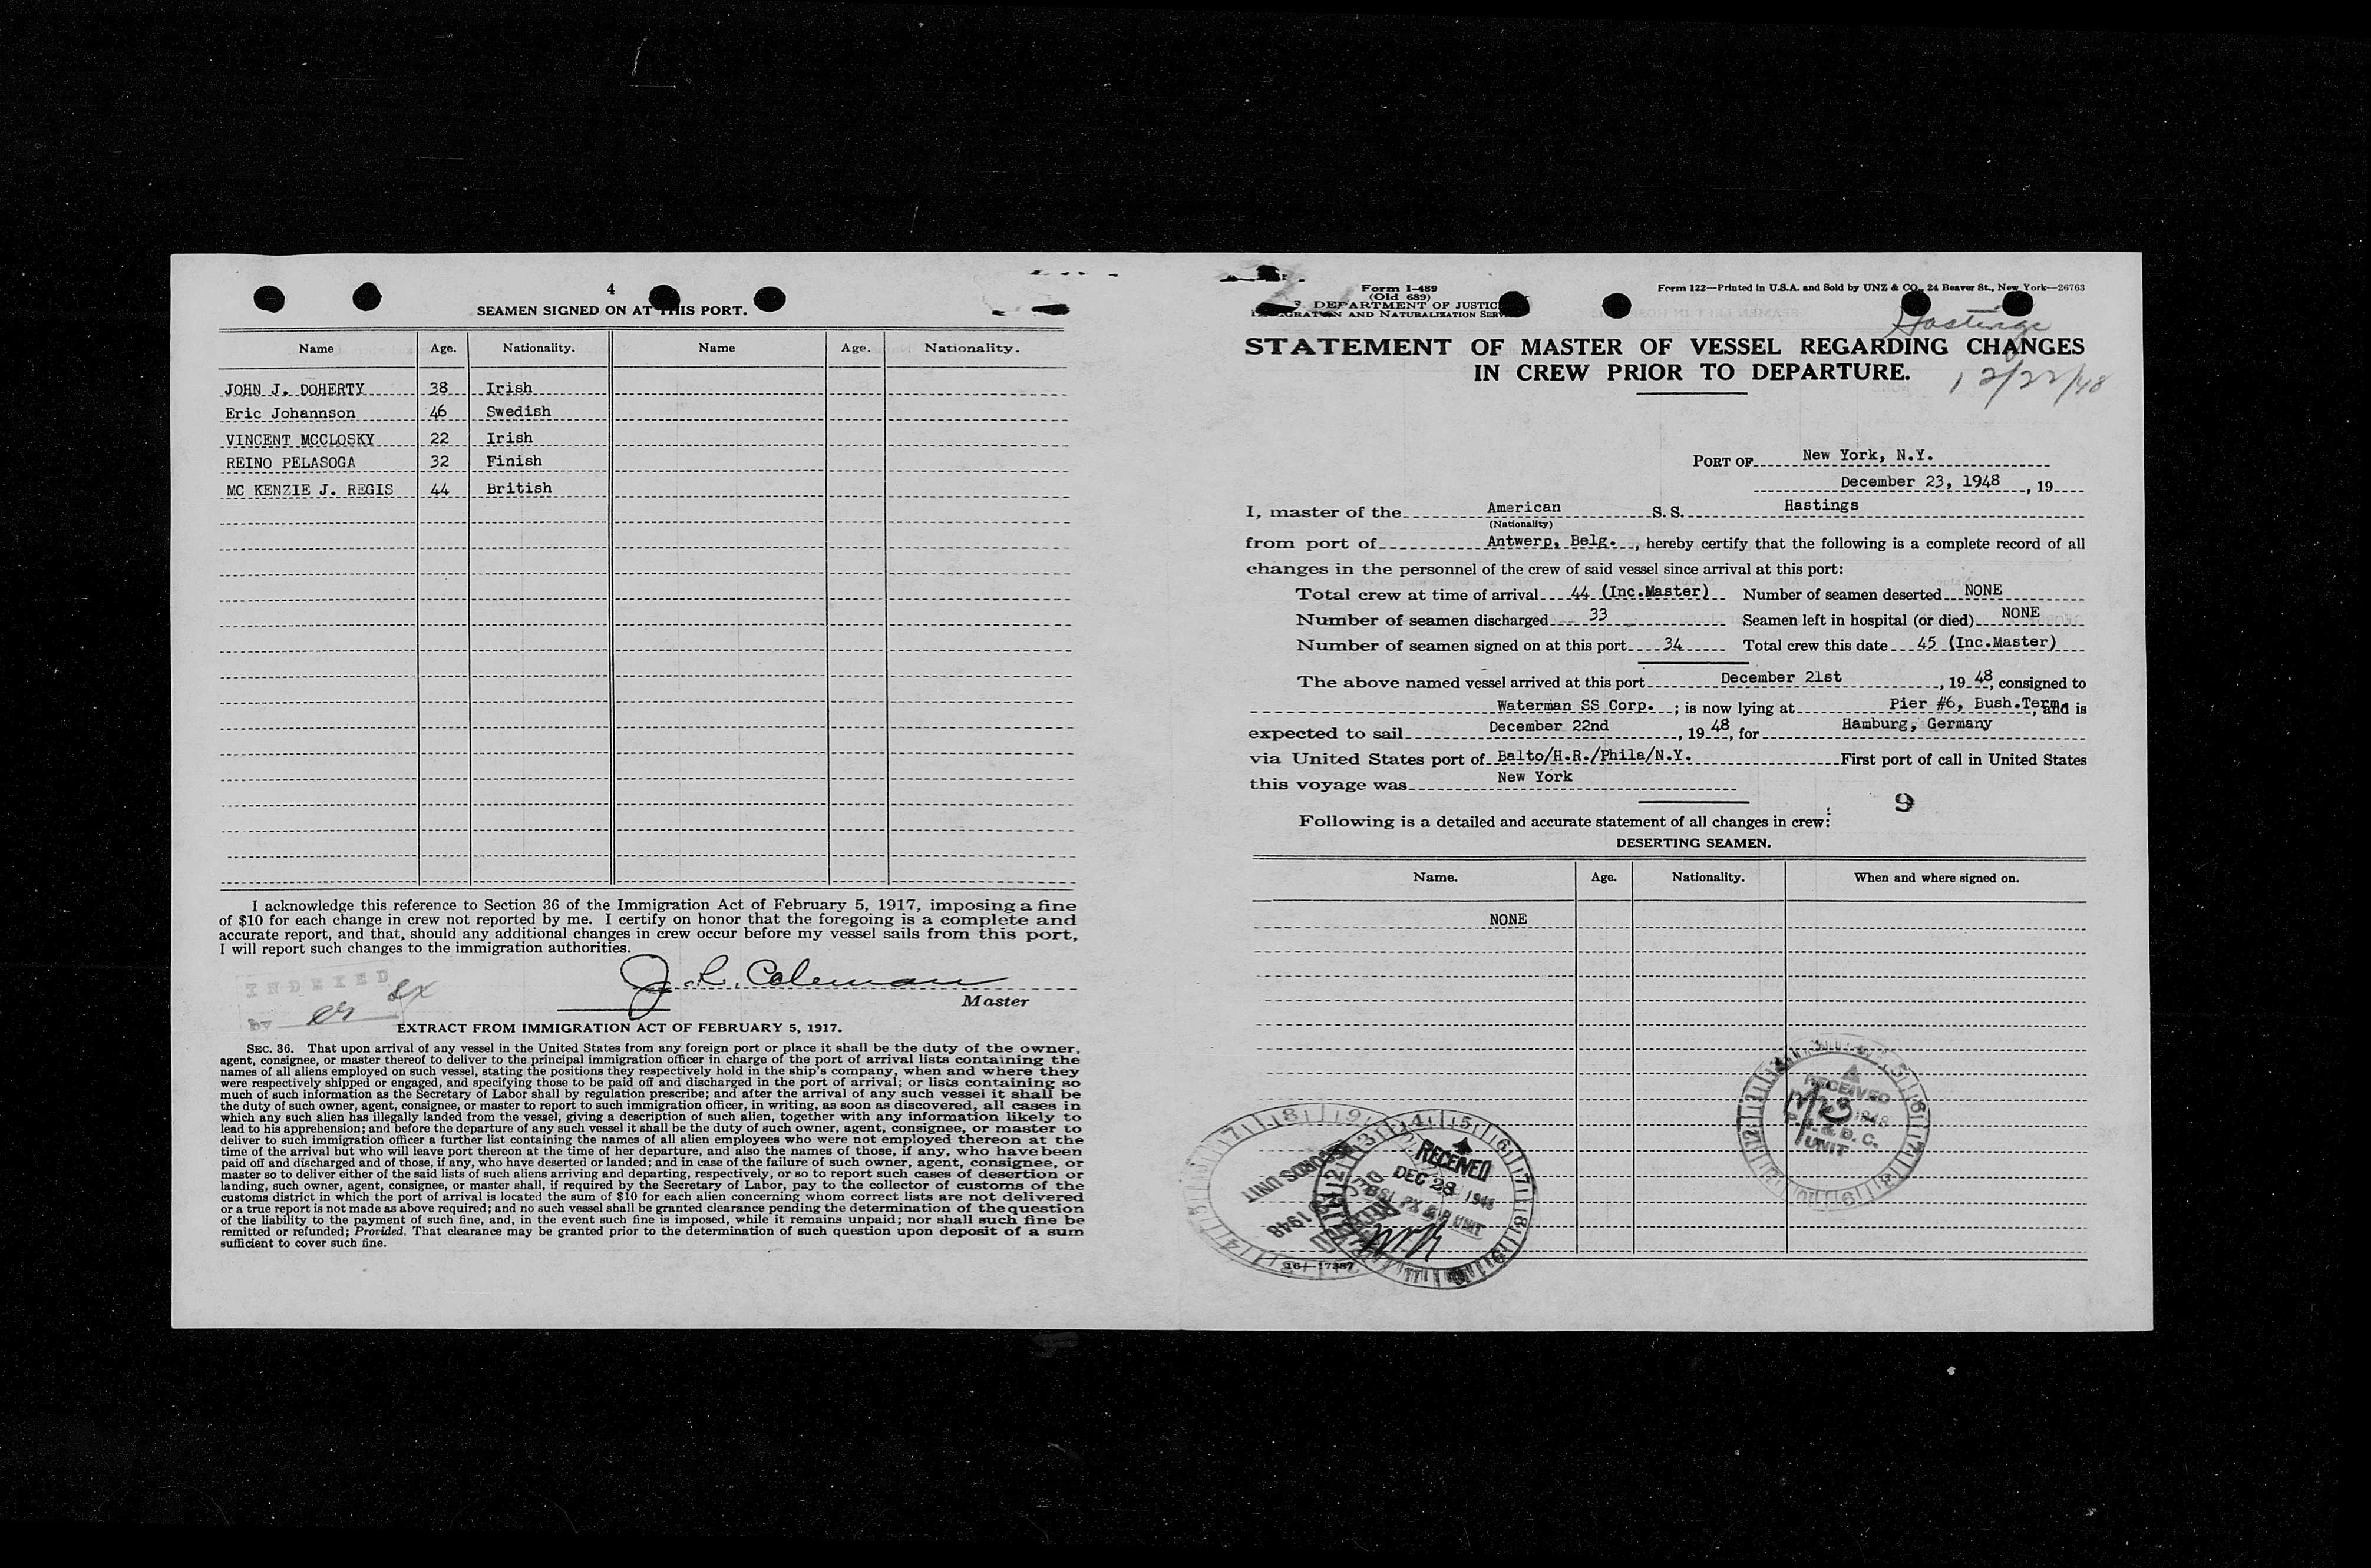 4
SEAMEN SIGNED ON AT THIS PORT.
Name Age. Nationality. Name Age. Nationality.
JOHN J. DOHERTY 38 Irish
Eric Johannson 46 Swedish
VINCENT MCCLOSKY 22 Irish
REINO PELASOGA 32 Finish
MC KENZIE J. REGIS 44 British
I acknowledge this reference to Section 36 of the Immigration Act of February 5, 1917, imposing a fine
of $10 for each change in crew not reported by me. I certify on honor that the foregoing is a complete and
accurate report, and that, should any additional changes in crew occur before my vessel sails from this port,
I will report such changes to the immigration authorities.
J. R. Coleman
Master
INDEXED
by
EXTRACT FROM IMMIGRATION ACT OF FEBRUARY 5, 1917.
SEC. 36. That upon arrival of any vessel in the United States from any foreign port or place it shall be the duty of the owner,
agent, consignee, or master thereof to deliver to the principal immigration officer in charge of the port of arrival lists containing the
names of all aliens employed on such vessel, stating the positions they respectively hold in the ship's company, when and where they
were respectively shipped or engaged, and specifying those to be paid off and discharged in the port of arrival; or lists containing so
much of such information as the Secretary of Labor shall by regulation prescribe; and after the arrival of any such vessel it shall be
the duty of such owner, agent, consignee, or master to report to such immigration officer, in writing, as soon as discovered, all cases in
which any such alien has illegally landed from the vessel, giving a description of such alien, together with any information likely to
lead to his apprehension; and before the departure of any such vessel it shall be the duty of such owner, agent, consignee, or master to
deliver to such immigration officer a further list containing the names of all alien employees who were not employed thereon at the
time of the arrival but who will leave port thereon at the time of her departure, and also the names of those, if any, who have been
paid off and discharged and of those, if any, who have deserted or landed; and in case of the failure of such owner, agent, consignee, or
master so to deliver either of the said lists of such aliens arriving and departing, respectively, or so to report such cases of desertion or
landing, such owner, agent, consignee, or master shall, if required by the Secretary of Labor, pay to the collector of customs of the
customs district in which the port of arrival is located the sum of $10 for each alien concerning whom correct lists are not delivered
or a true report is not made as above required; and no such vessel shall be granted clearance pending the determination of the question
of the liability to the payment of such fine, and, in the event such fine is imposed, while it remains unpaid; nor shall such fine be
remitted or refunded; Provided, That clearance may be granted prior to the determination of such question upon deposit of a sum
sufficient to cover such fine.
Form 1-489
(Old 689)
DEPARTMENT OF JUSTICE
AND NATURALIZATION SERV
Form 122—Printed in U.S.A. and Sold by UNZ & CO., 24 Beaver St., New York—26763
Hastings
STATEMENT OF MASTER OF VESSEL REGARDING CHANGES
IN CREW PRIOR TO DEPARTURE.
12/22/48
PORT OF New York, N.Y.
December 23, 1948, 19
I, master of the American S.S. Hastings
(Nationality)
from port of Antwerp, Belg., hereby certify that the following is a complete record of all
changes in the personnel of the crew of said vessel since arrival at this port:
Total crew at time of arrival 44 (Inc.Master) Number of seamen deserted NONE
Number of seamen discharged 33 Seamen left in hospital (or died) NONE
Number of seamen signed on at this port 34 Total crew this date 45 (Inc.Master)
The above named vessel arrived at this port December 21st, 19 48, consigned to
Waterman SS Corp. ; is now lying at Pier #6, Bush.Term., and is
expected to sail December 22nd, 19 48, for Hamburg, Germany
via United States port of Balto/H.R./Phila/N.Y. First port of call in United States
this voyage was New York
9
Following is a detailed and accurate statement of all changes in crew:
DESERTING SEAMEN.
Name. Age. Nationality. When and where signed on.
NONE
RECEIVED
1948
P. I. & D. C.
UNIT
RECORDS UNIT
1948
RECEIVED
DEC 28 1948
UNIT
16—17287